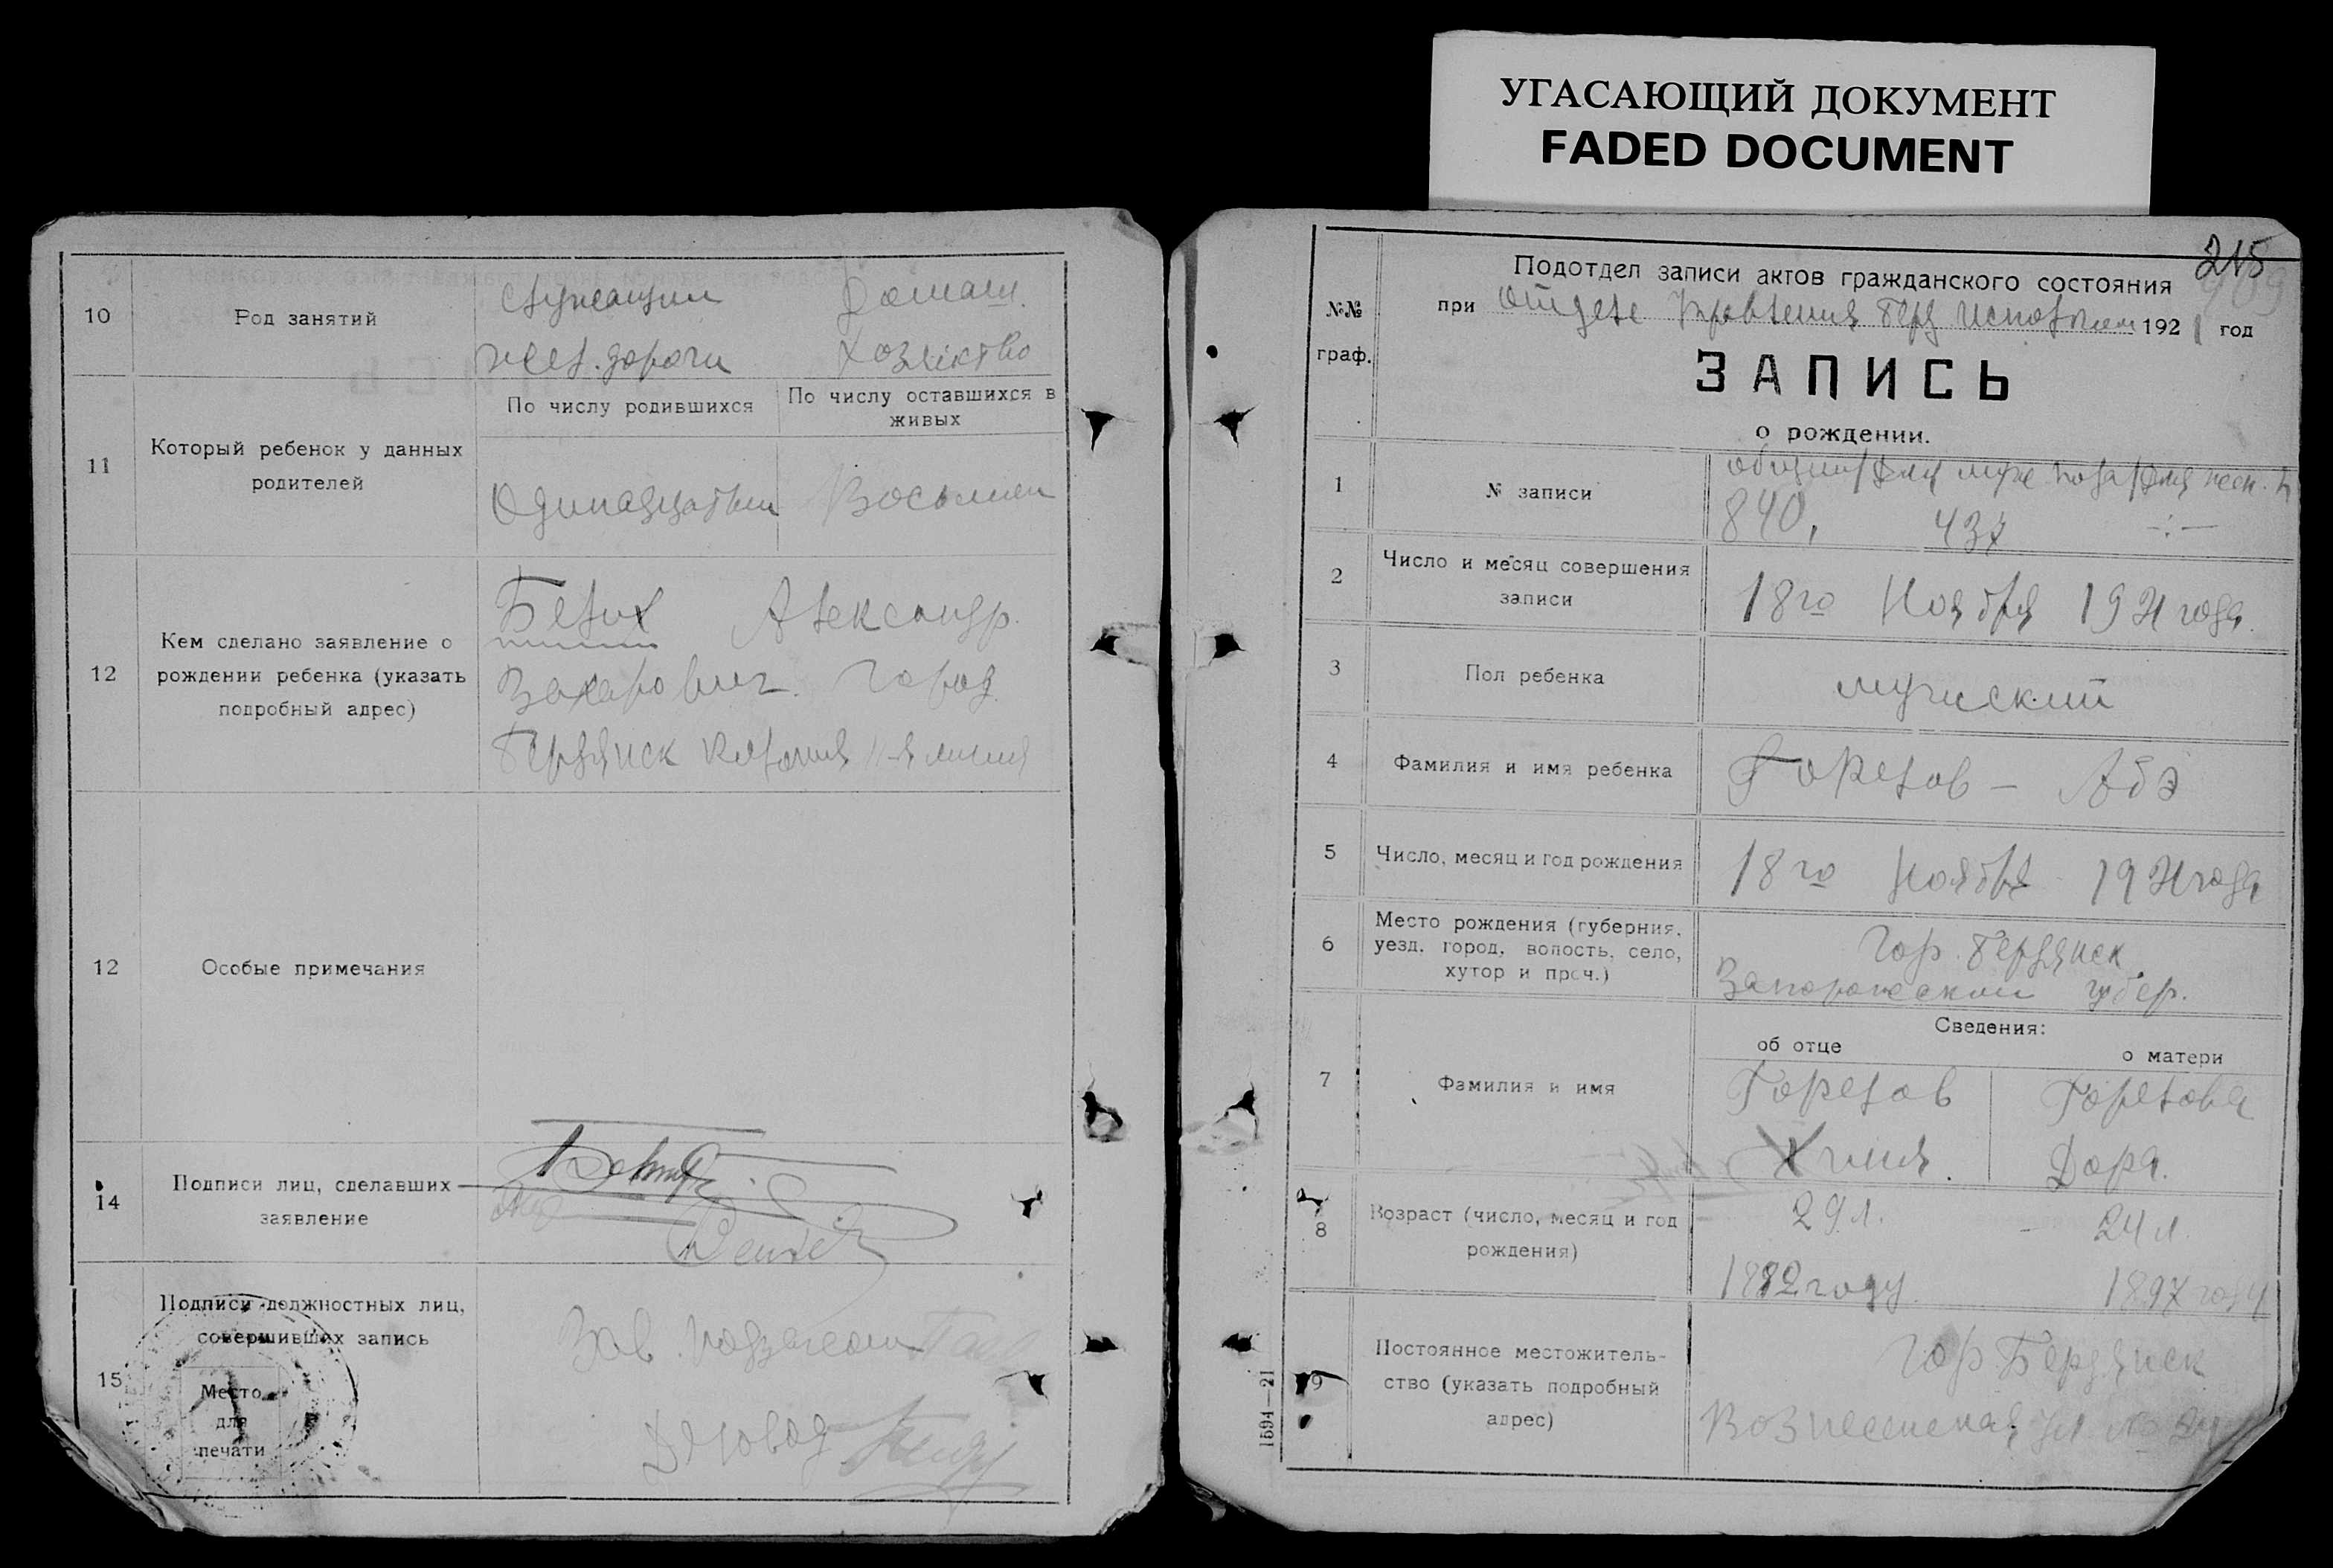 УГАСАЮЩИЙ ДОКУМЕНТ
FADED DOCUMENT
10
Род занятий
Служащий
жел. дороги
Домаш.
Хозяйство
11
Который ребенок у данных
родителей
По числу родившихся
По числу оставшихся в
живых
Одинадцатый
Восьмой
12
Кем сделано заявление о
рождении ребенка (указать
подробный адрес)
Белих Александр
Захарович. Город
Бердянск Колония 11-я линия
12
Особые примечания
14
Подписи лиц, сделавших
заявление
15
Подписи должностных лиц,
совершивших запись
Место
для
печати
Зав. подотделом
Деловод
215
№№
граф.
Подотдел записи актов гражданского состояния
при Отделе Управления Берд Исполком 1921 год
ЗАПИСЬ
о рождении.
1
№ записи
общий/для муж. пола/для женск. п
840, 437 -:-
2
Число и месяц совершения
записи
18го Ноября 1921 года.
3
Пол ребенка
мужский
4
Фамилия и имя ребенка
Горелов - Абэ
5
Число, месяц и год рождения
18го Ноября 1921 года
6
Место рождения (губерния,
уезд, город, волость, село,
хутор и проч.)
Гор. Бердянск
Запорожской губер.
Сведения:
об отце
о матери
7
Фамилия и имя
Горелов
Хиля.
Горелова
Дора.
8
Возраст (число, месяц и год
рождения)
29 л. - 24 л.
1892 году 1897 году
9
Постоянное местожитель-
ство (указать подробный
адрес)
гор. Бердянск
Вознесенская ул. №
1594—21